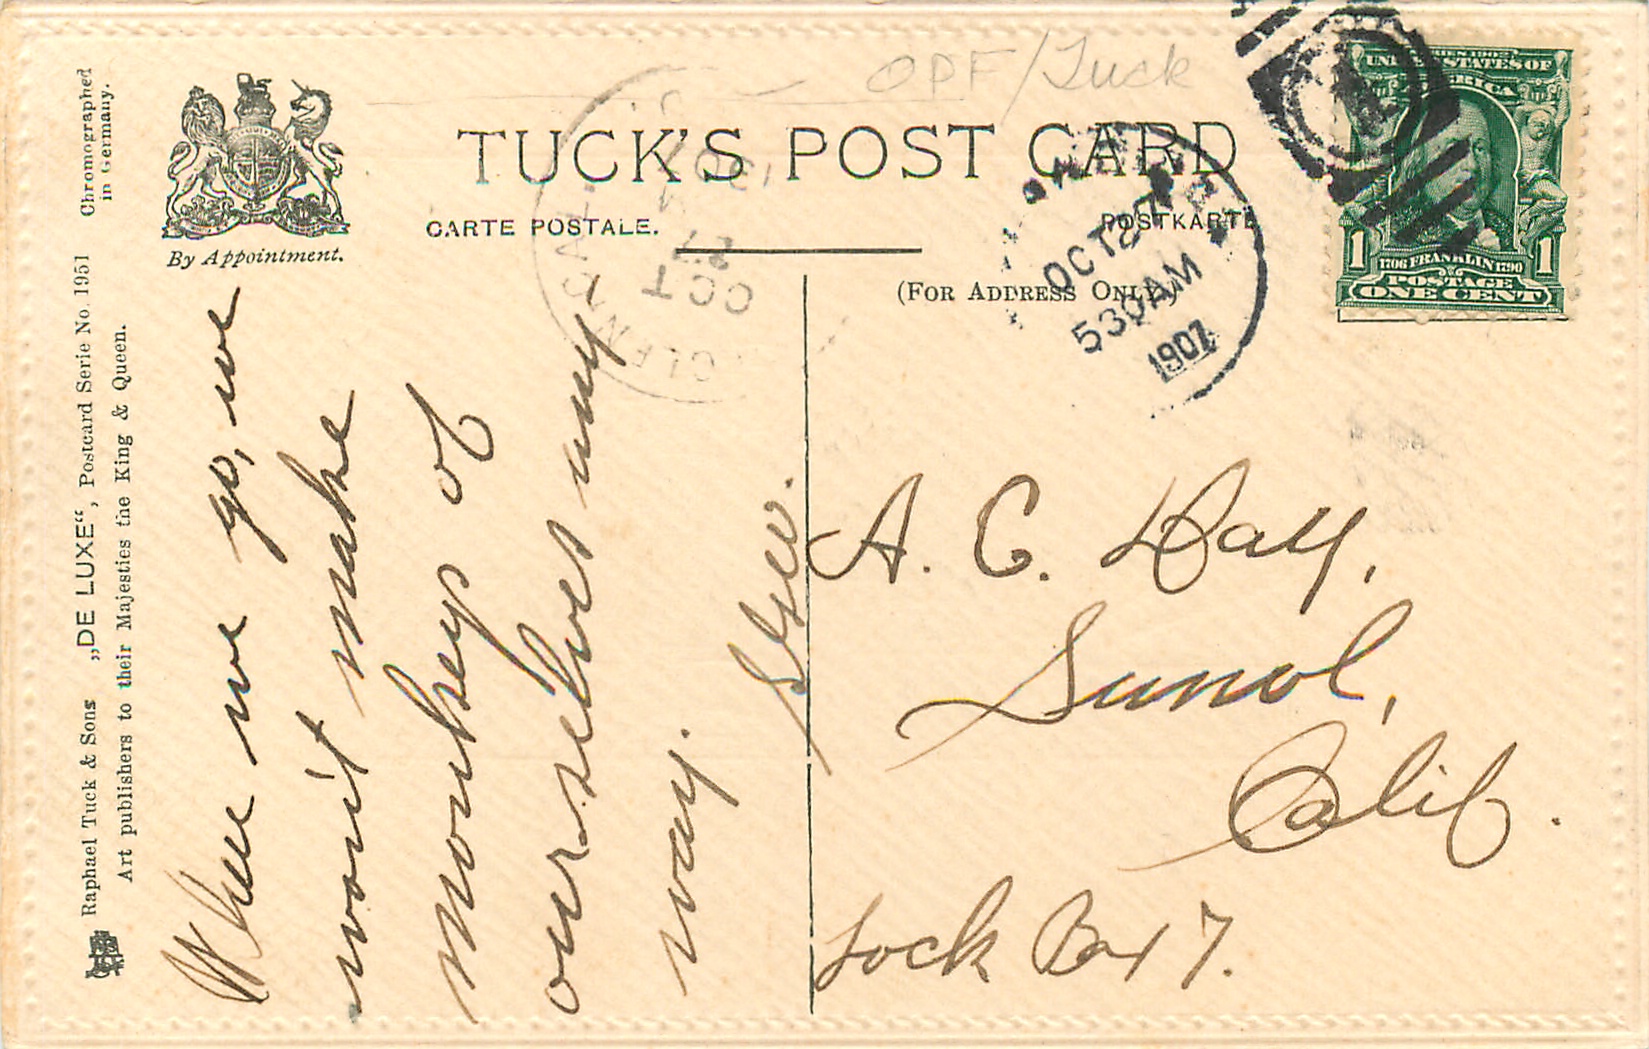 OPF/Tuck
TUCK'S POST CARD
CARTE POSTALE.
POSTKARTE
(FOR ADDRESS ONLY)
By Appointment.
Chromographed
in Germany.
Raphael Tuck & Sons „DE LUXE“, Postcard Serie No. 1951
Art publishers to their Majesties the King & Queen.
SERIES 1902
UNITED STATES OF
AMERICA
1 1706 FRANKLIN 1790 1
POSTAGE
ONE CENT
OCT 27
530AM
1907
OCT
27
1907
When we go, we
won't make
monkeys of
ourselves any
way.
Geo.
A. C. Day,
Sunol,
Calif.
Lock Box 7.